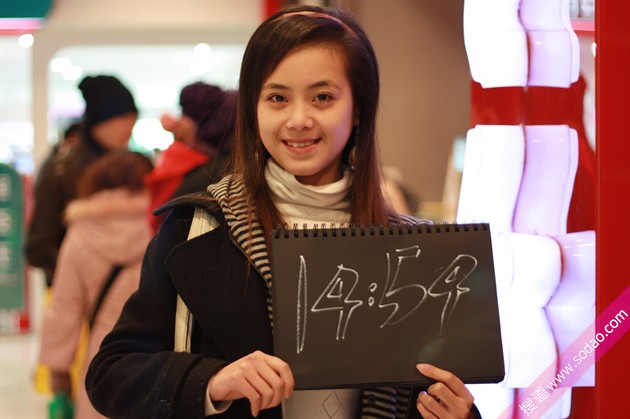 14:54
搜道www.sodao.com